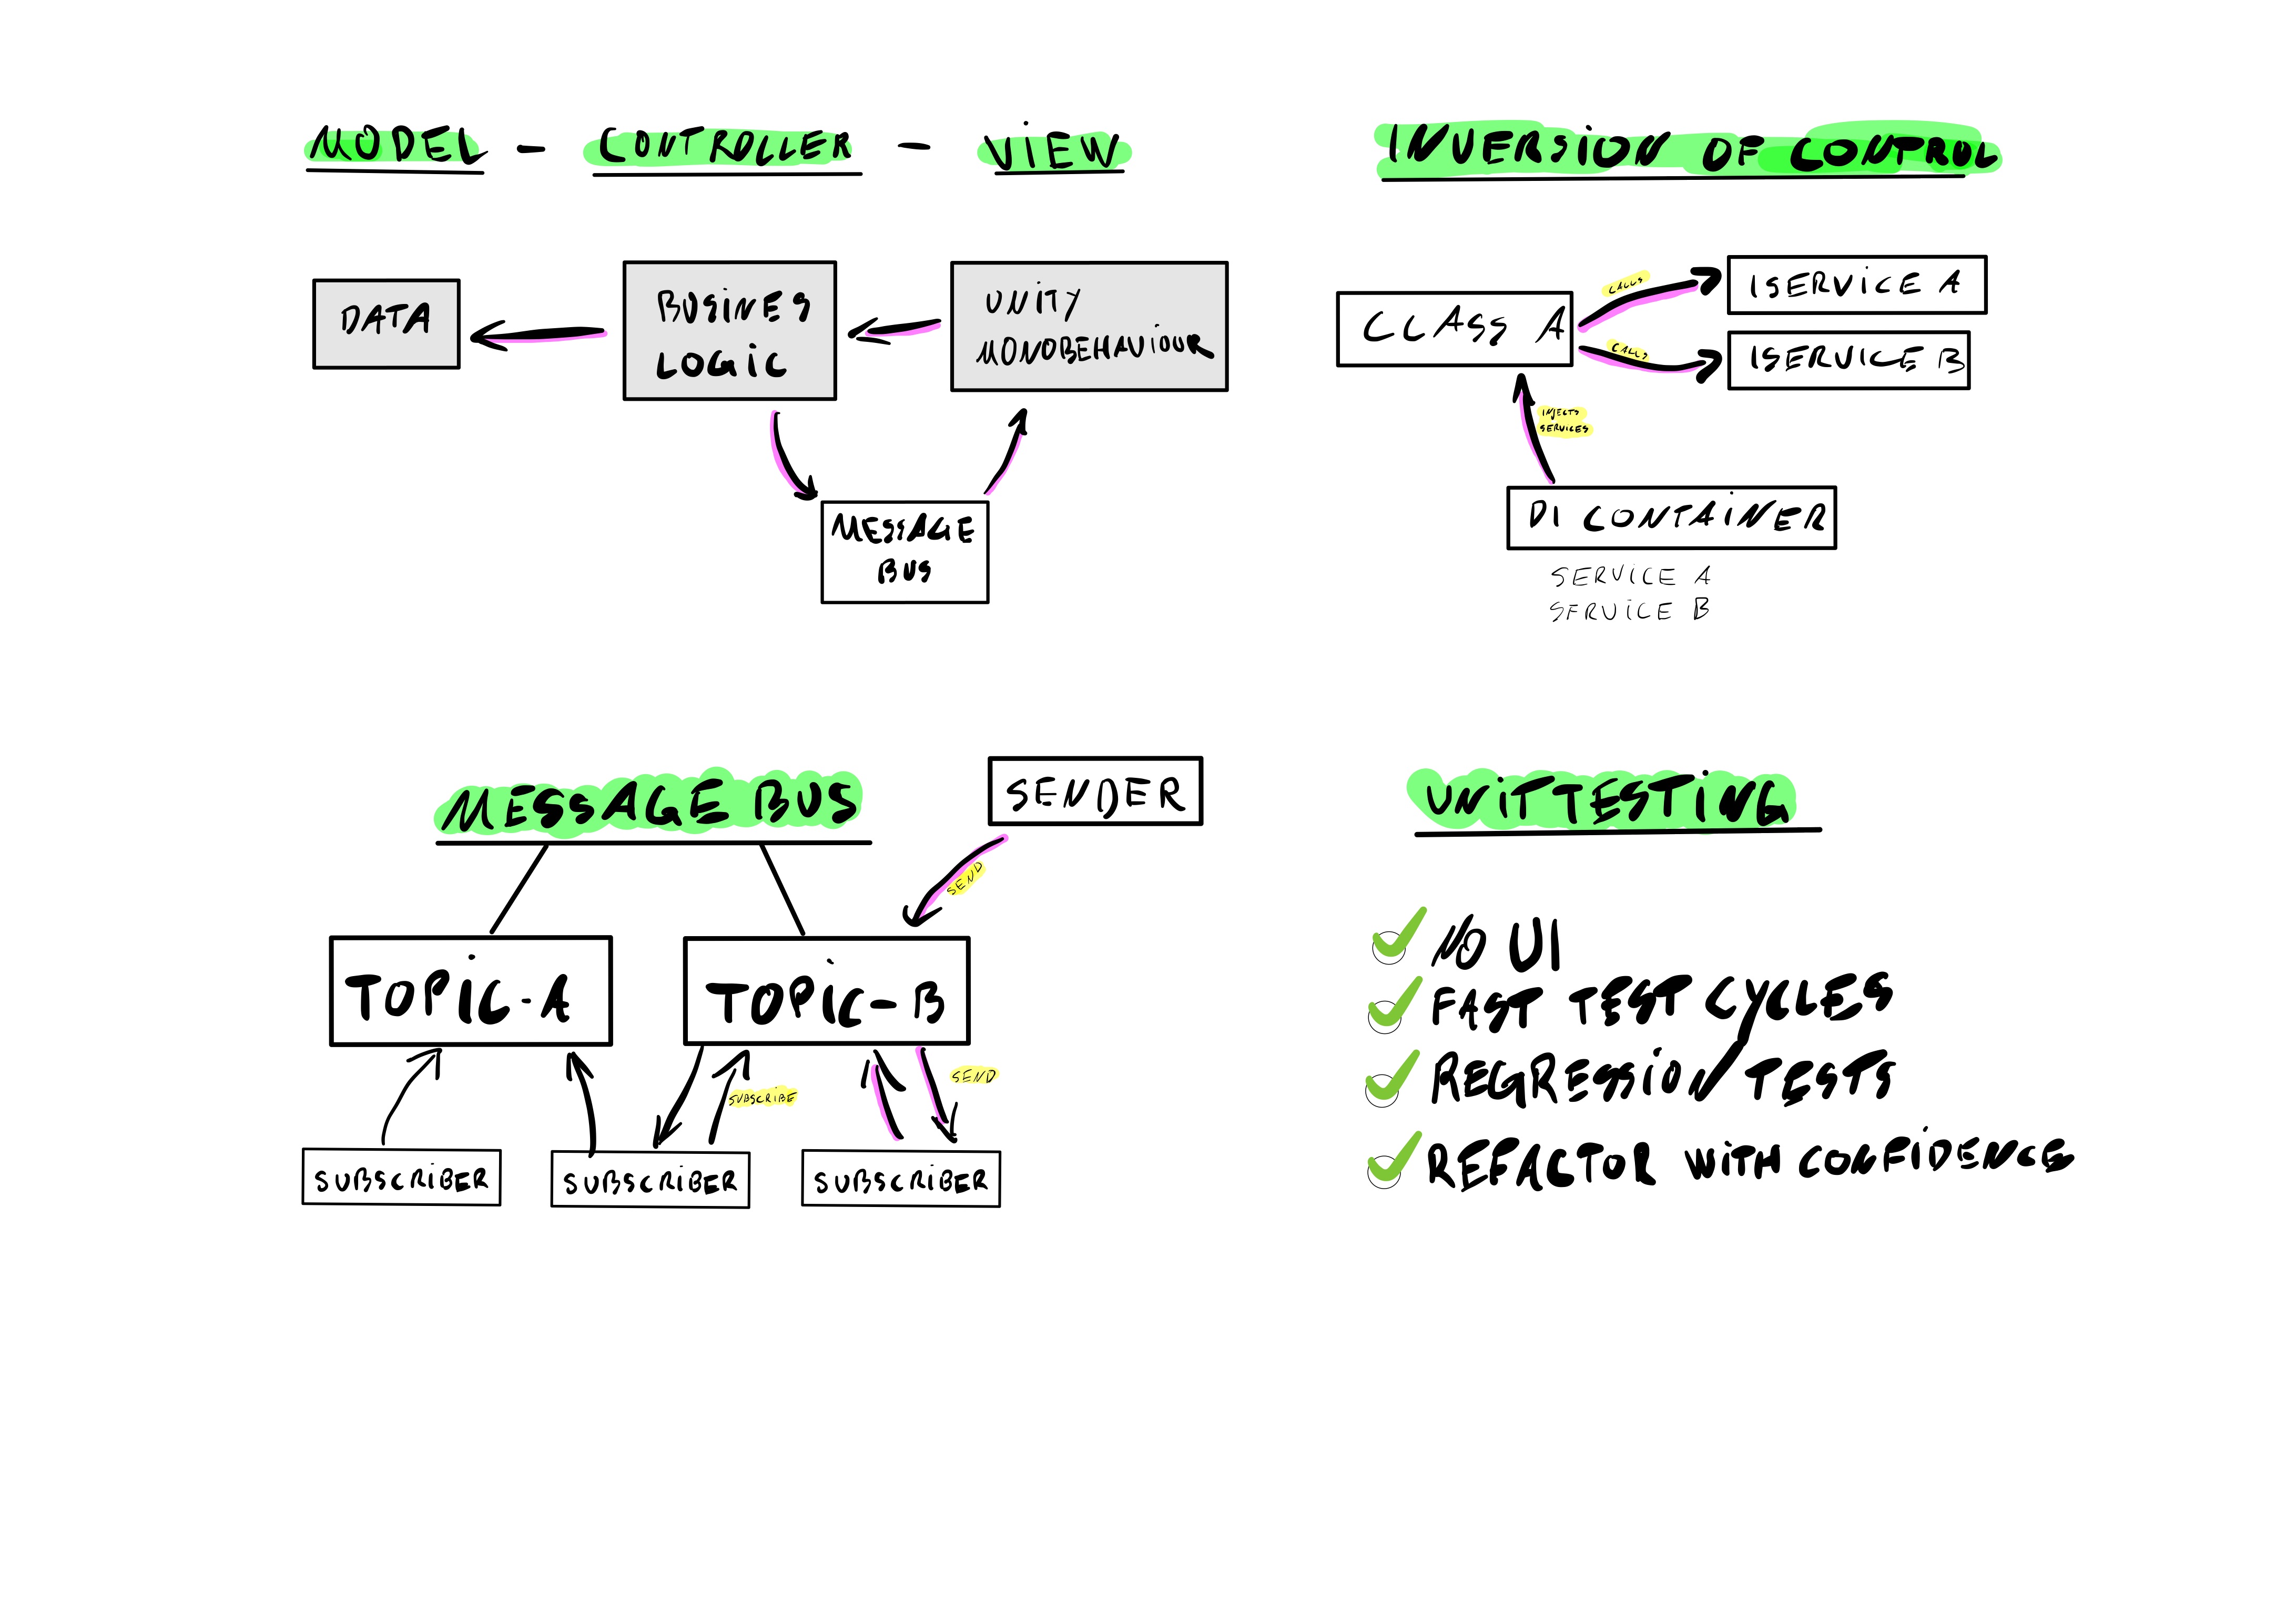 MODEL - CONTROLLER - VIEW
DATA
BUSINES
LOGIC
UNITY
MONOBEHAVIOUR
MESSAGE
BUS
INVERSION OF CONTROL
CLASS A
CALLS
CALLS
ISERVICE A
ISERVICE B
INJECTS
SERVICES
DI CONTAINER
SERVICE A
SERVICE B
MESSAGE BUS
SENDER
SEND
TOPIC-A
TOPIC-B
SUBSCRIBE
SEND
SUBSCRIBER
SUBSCRIBER
SUBSCRIBER
UNITTESTING
NO UI
FAST TEST CYCLES
REGRESSION TESTS
REFACTOR WITH CONFIDENCE